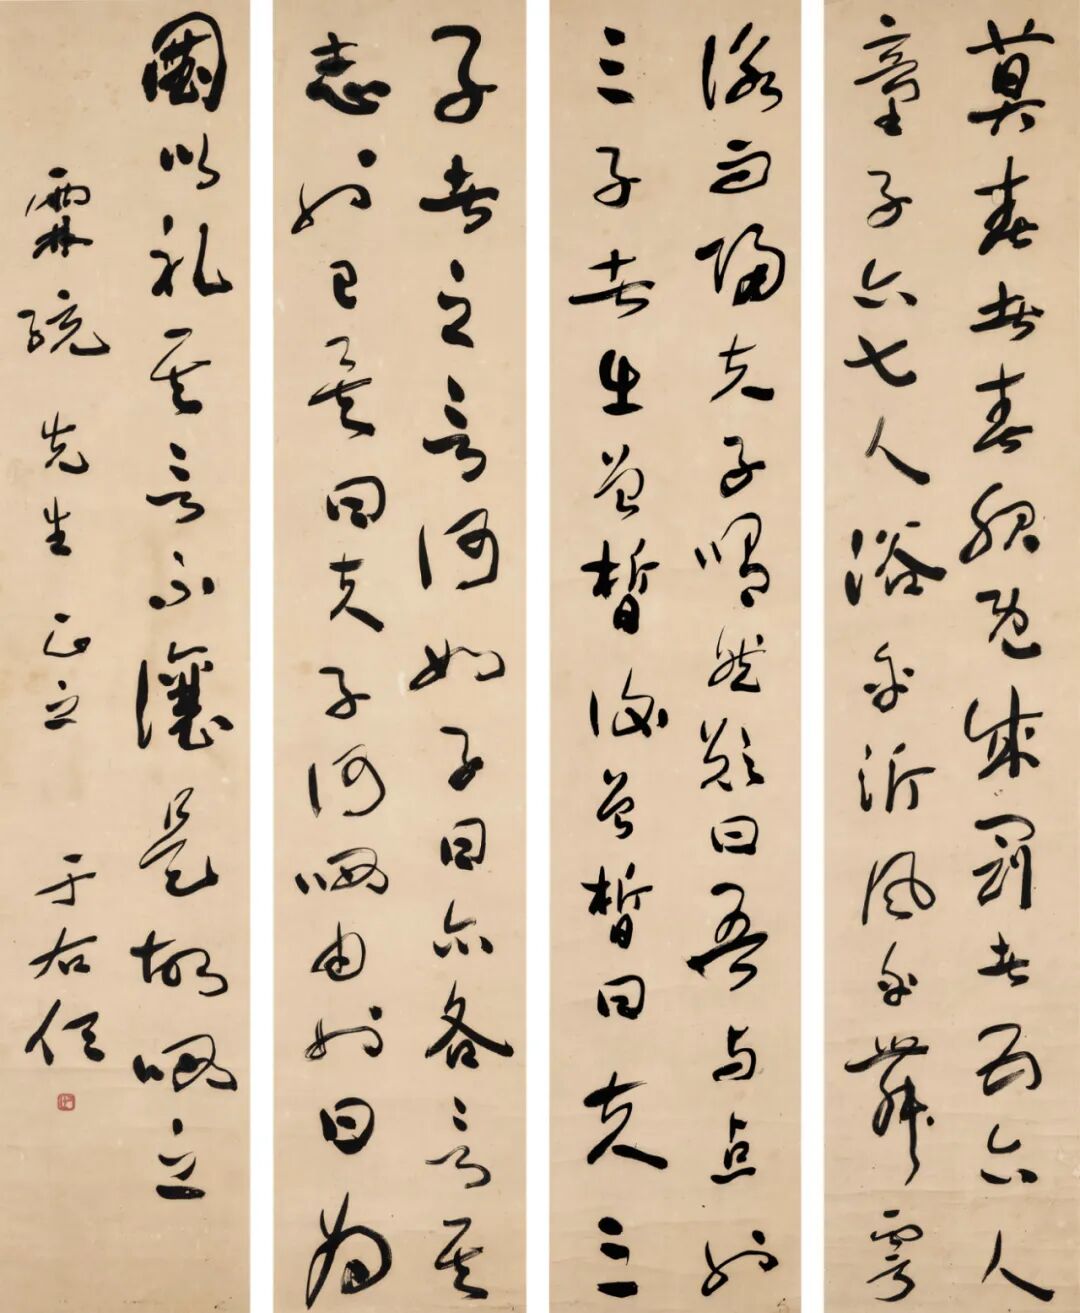 莫春者春服既成冠者五六人
童子六七人浴乎沂風乎舞雩
詠而歸夫子喟然歎曰吾与点也
三子者出曾晳後曾晳曰夫三
子者之言何如子曰亦各言其
志也已矣曰夫子何哂由也曰为
國以礼其言不讓是故哂之
霖統先生正之 于右任